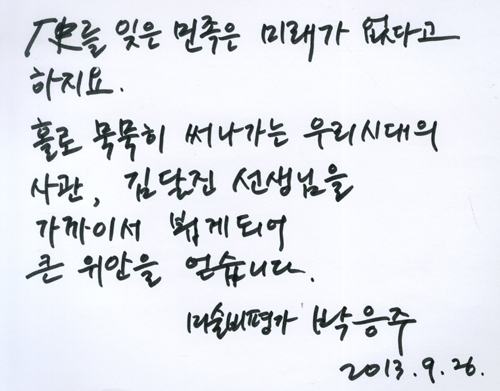 厂史를 잊은 민족은 미래가 없다고
하지요.
홀로 묵묵히 써나가는 우리시대의
사관, 김달진 선생님을
가까이서 뵙게되어
큰 위안을 얻습니다.
미술비평가 박응주
2013. 9. 26.